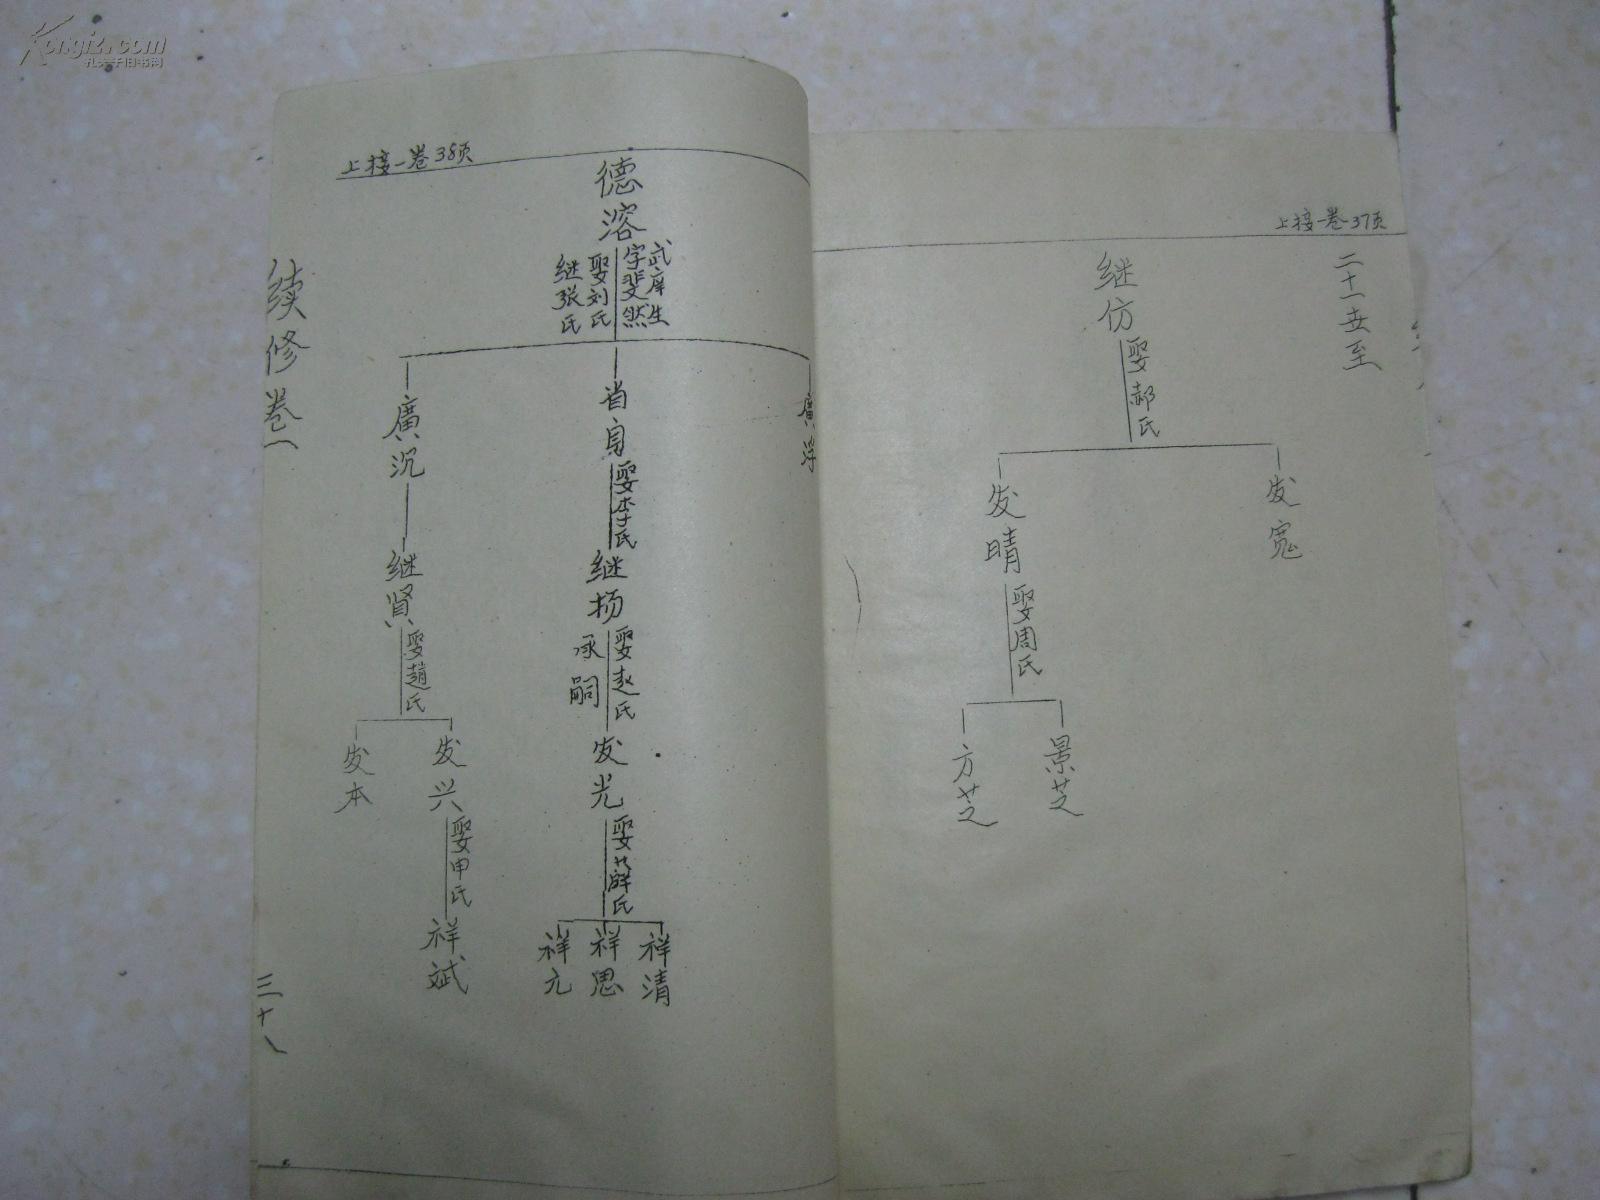 Kongfz.com
孔夫子旧书网
上接一卷37页
二十一世至
继仿
娶郝氏
发宽
发晴
娶周氏
景芝
方芝
上接一卷38页
德溶
武庠生
字斐然
娶刘氏
继张氏
廣浮
省身
娶李氏
继扬
娶赵氏
承嗣
发光
娶薛氏
祥清
祥思
祥元
廣沉
继贤
娶趙氏
发兴
娶申氏
祥斌
发本
续修卷一
三十八